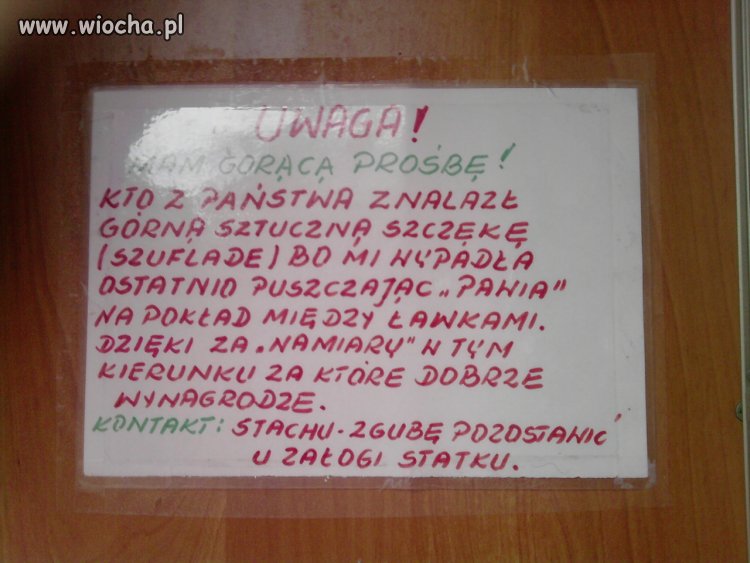 www.wiocha.pl
UWAGA!
MAM GORĄCĄ PROŚBĘ!
KTO Z PAŃSTWA ZNALAZŁ
GÓRNĄ SZTUCZNĄ SZCZĘKĘ
(SZUFLADE) BO MI WYPADŁA
OSTATNIO PUSZCZAJĄC „PAWIA"
NA POKŁAD MIĘDZY ŁAWKAMI.
DZIĘKI ZA „NAMIARY" W TYM
KIERUNKU ZA KTÓRE DOBRZE
WYNAGRODZE.
KONTAKT: STACHU - ZGUBĘ POZOSTAWIĆ
U ZAŁOGI STATKU.